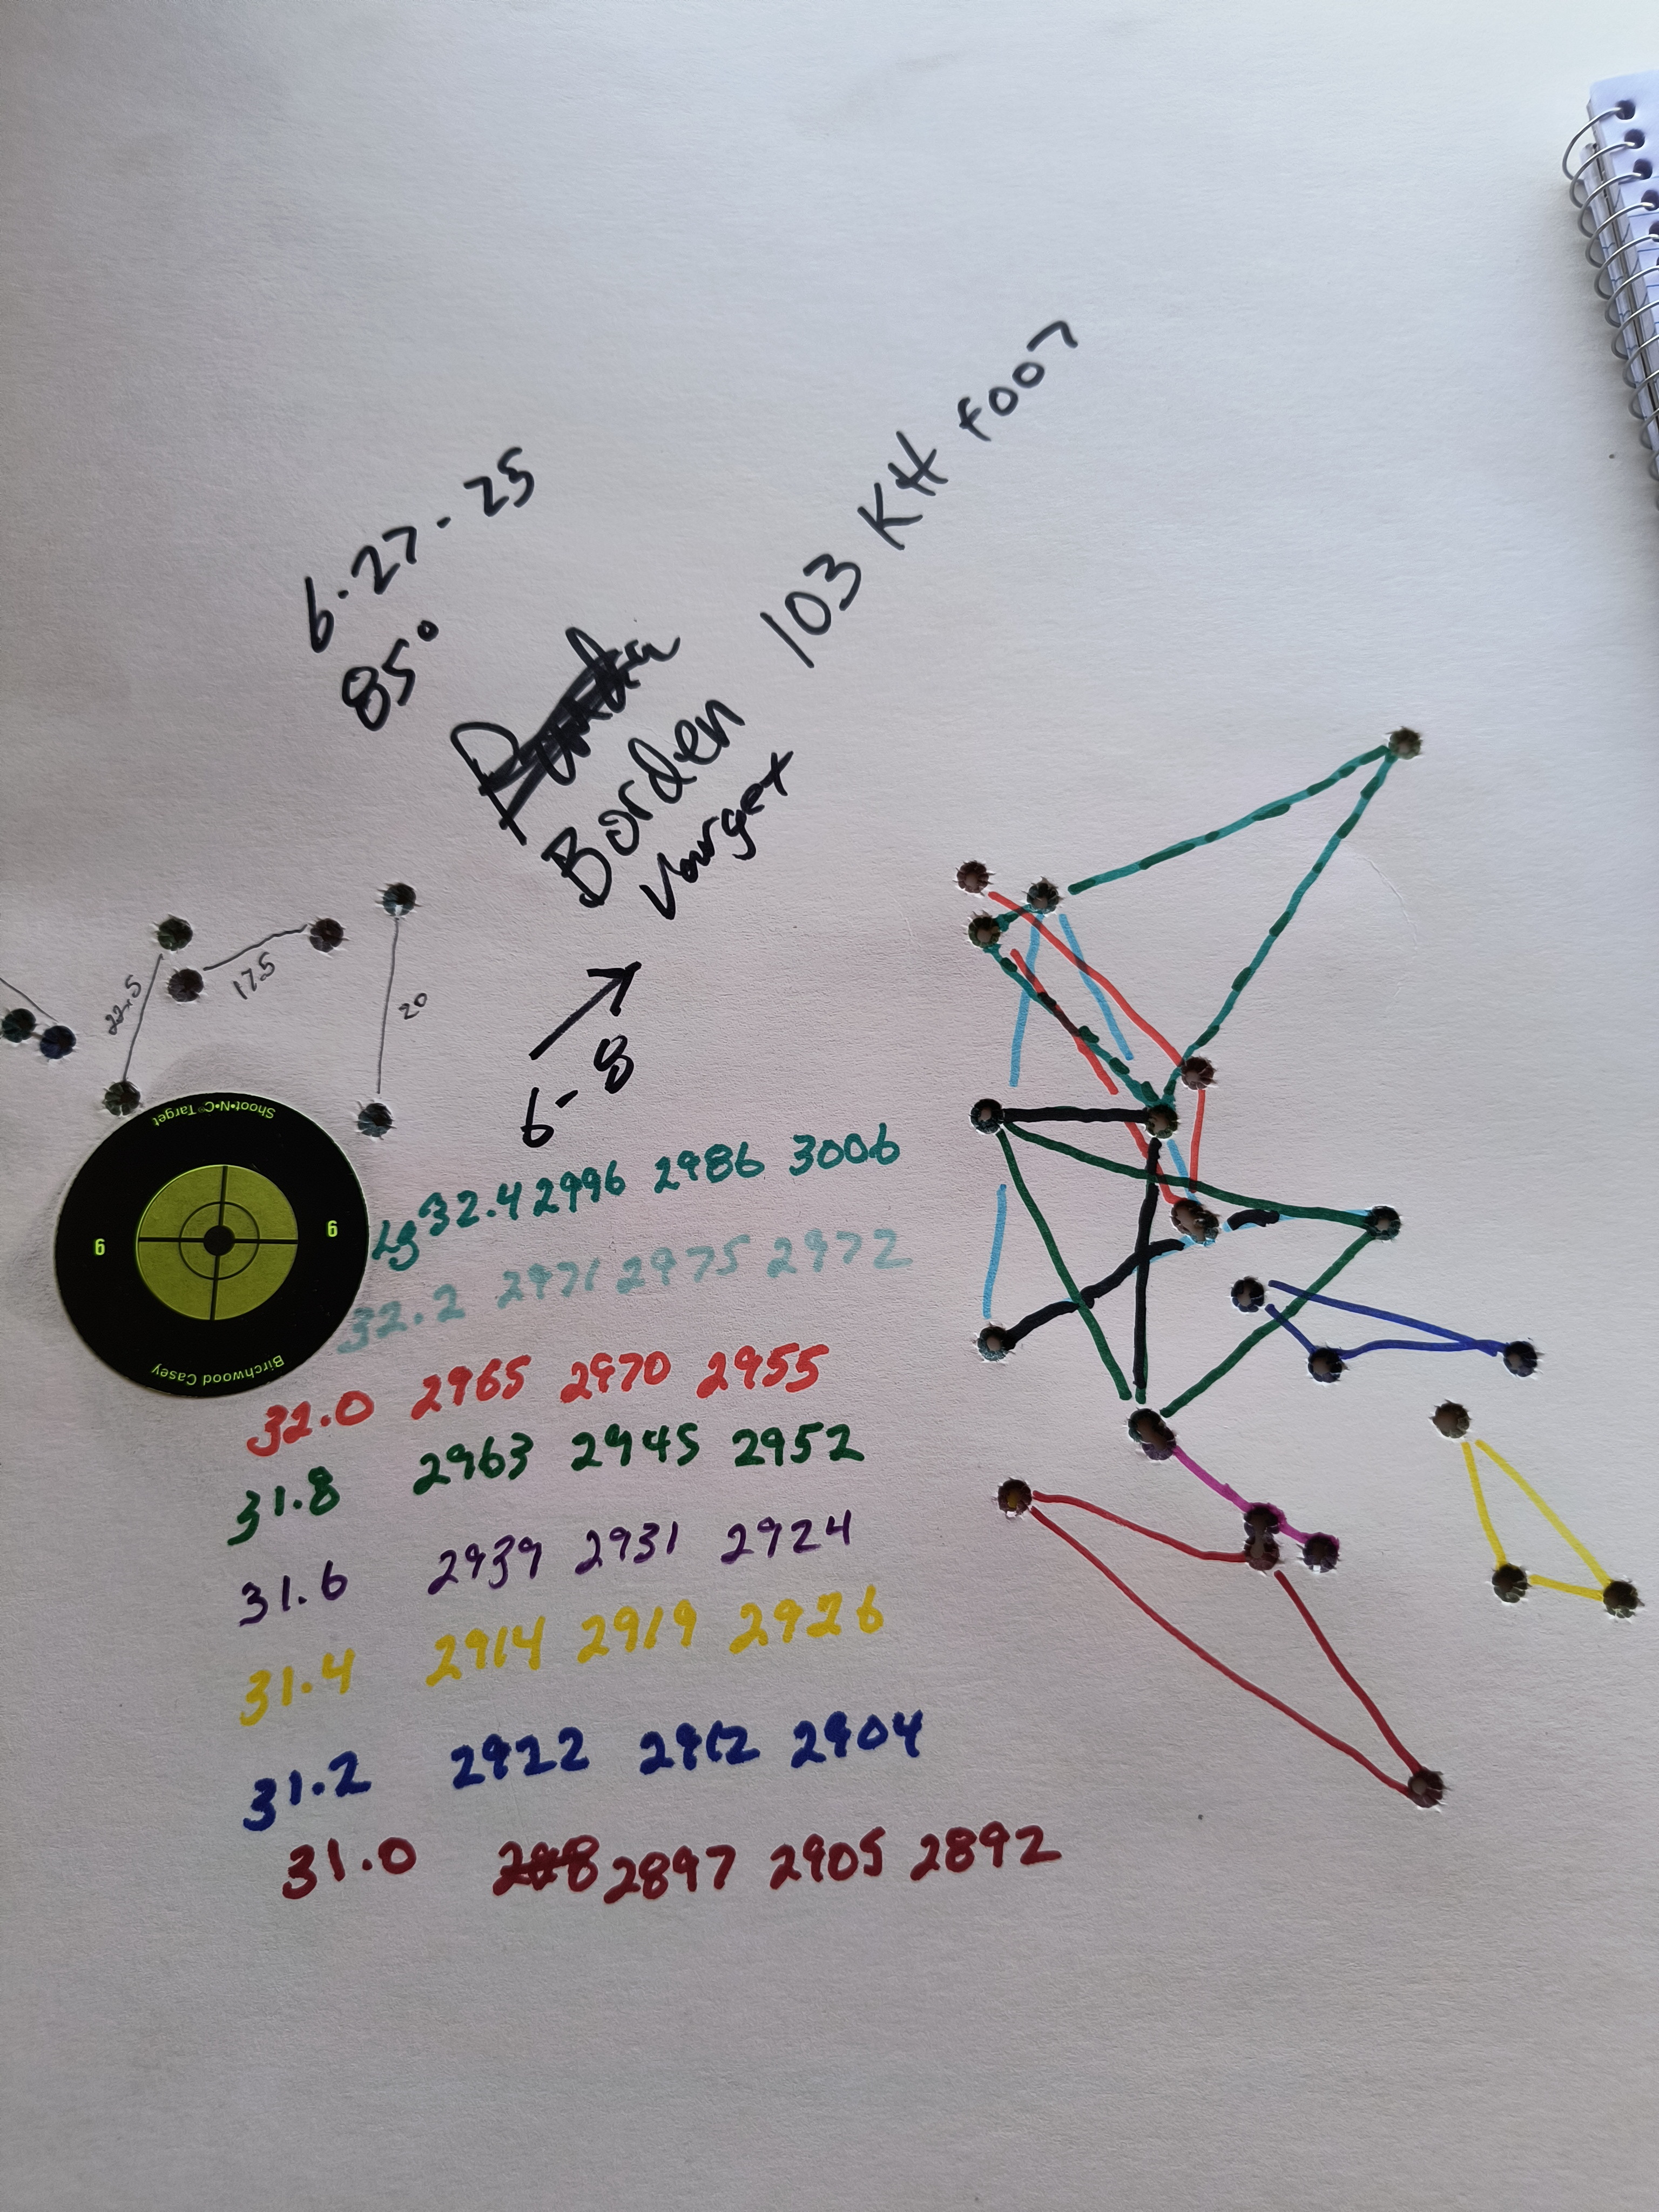 6-27-25
85°
Borden
Varget
103 KH FOOT
22.5
17.5
20
6-8
Shoot•N•C® Target
6 6
Birchwood Casey
Lg 32.4 2996 2986 3006
32.2 2971 2975 2972
32.0 2965 2970 2955
31.8 2963 2945 2952
31.6 2939 2931 2924
31.4 2914 2919 2926
31.2 2922 2912 2904
31.0 2897 2905 2892